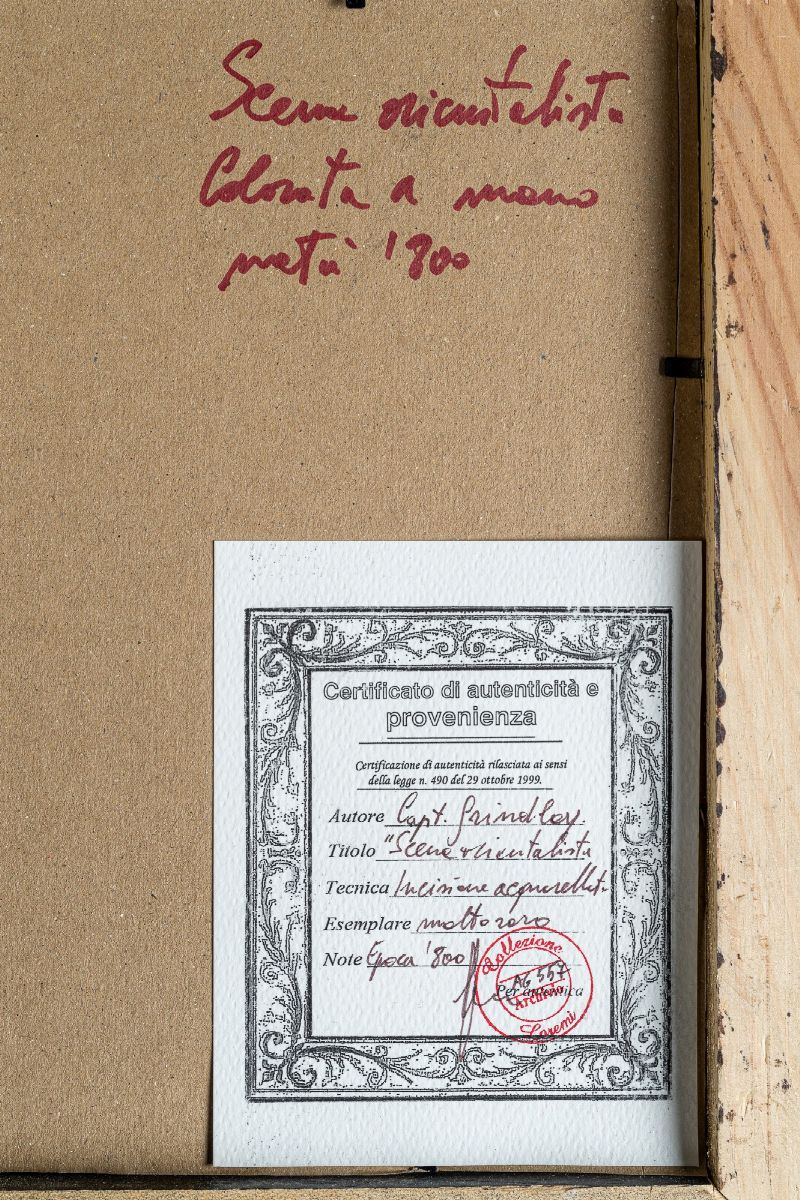 Scena orientalista
Colorata a mano
metà '800
Certificato di autenticità e
provenienza
Certificazione di autenticità rilasciata ai sensi
della legge n. 490 del 29 ottobre 1999.
Autore Capt. Grindlay
Titolo "Scena orientalista
Tecnica Incisione acquarellata
Esemplare molto raro
Note Epoca '800
Collezione
AG 557
Per autentica
Archivio